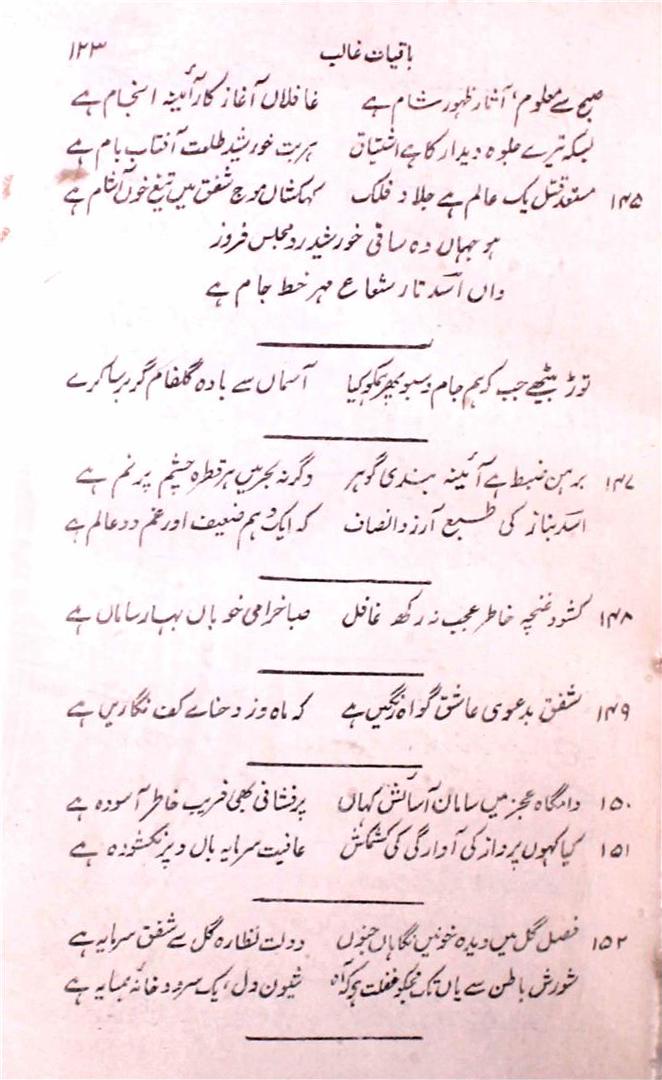 باقیات غالب ۱۲۳
صبح سے معلوم، آثار ظہور شام ہے غافلاں آغاز کار آئینہ انجام ہے
بسکہ تیرے جلوہ دیدار کا ہے اشتیاق ہر بت خورشید طلعت آفتاب بام ہے
۱۴۵ مستعد قتل یک عالم ہے جلاد فلک کہکشاں موج شفق میں تیغ خوں آشام ہے
ہو جہاں وہ ساقی خورشید رو مجلس فروز
واں اسد تار شعاع مہر خط جام ہے
توڑ بیٹھے جب کہ ہم جام و سبو پھر ہمکو کیا آسماں سے بادہ گلفام گر برسا کرے
۱۴۷ برہن ضبط ہے آئینہ بندی گوہر وگرنہ بحر میں ہر قطرہ چشم پر نم ہے
اسد بناز کی طبع آرزو انصاف کہ ایک وہم ضعیف اور غم دو عالم ہے
۱۴۸ کشود غنچہ خاطر عجب نہ رکھ غافل صبا خرامی خوباں بہار ساماں ہے
۱۴۹ شفق بدعوی عاشق گواہ رنگیں ہے کہ ماہ دزد حنائے کف نگاریں ہے
۱۵۰ دامگاہ عجز میں سامان آسائش کہاں پرفشانی بھی فریب خاطر آسودہ ہے
۱۵۱ کیا کہوں پرواز کی آوارگی کی کشمکش عافیت سرمایہ بال و پر نکشودہ ہے
۱۵۲ فصل گل میں دیدہ خونیں نگاہاں جنوں دولت نظارہ گل سے شفق سرمایہ ہے
شورش باطن سے یاں تک مجکو غفلت ہے کہ آہ شیون دل، یک سرود خانہ ہمسایہ ہے